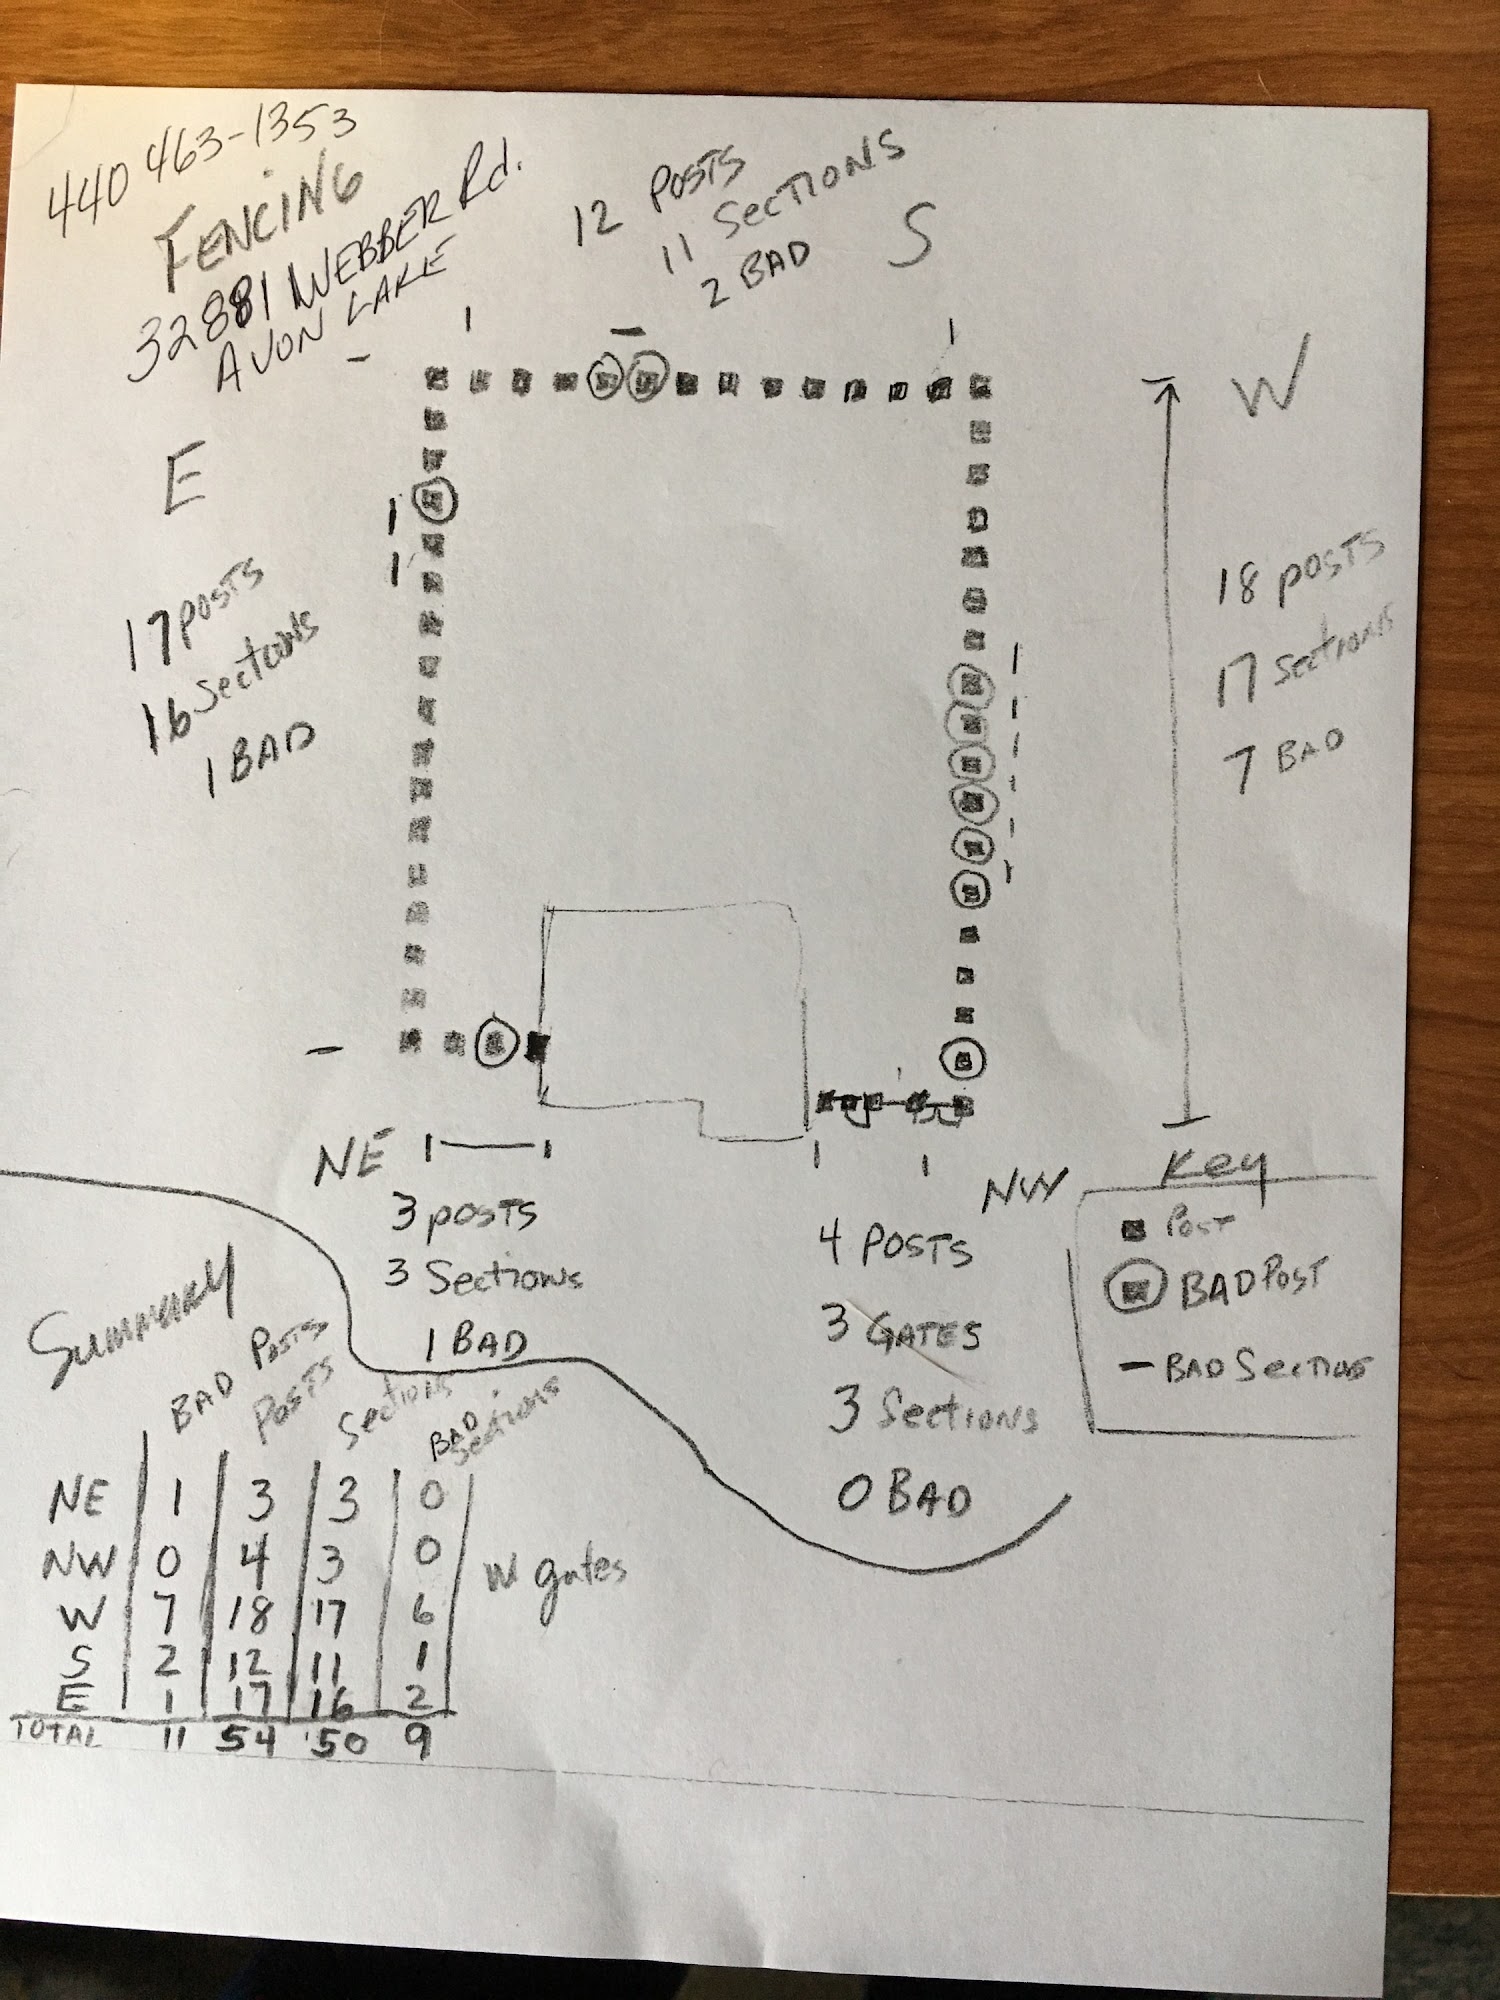 440 463-1353
FENCING
32881 WEBBER Rd.
AVON LAKE
12 POSTS
11 Sections
2 BAD
S
W
E
17 posts
16 Sections
1 BAD
18 posts
17 sections
7 BAD
NE
3 posts
3 Sections
1 BAD
NW
4 POSTS
3 GATES
3 Sections
0 BAD
Key
POST
BAD POST
– BAD Section
Summary
BAD Posts
Posts
Sections
BAD Sections
NE 1 3 3 0
NW 0 4 3 0 w gates
W 7 18 17 6
S 2 12 11 1
E 1 17 16 2
TOTAL 11 54 50 9